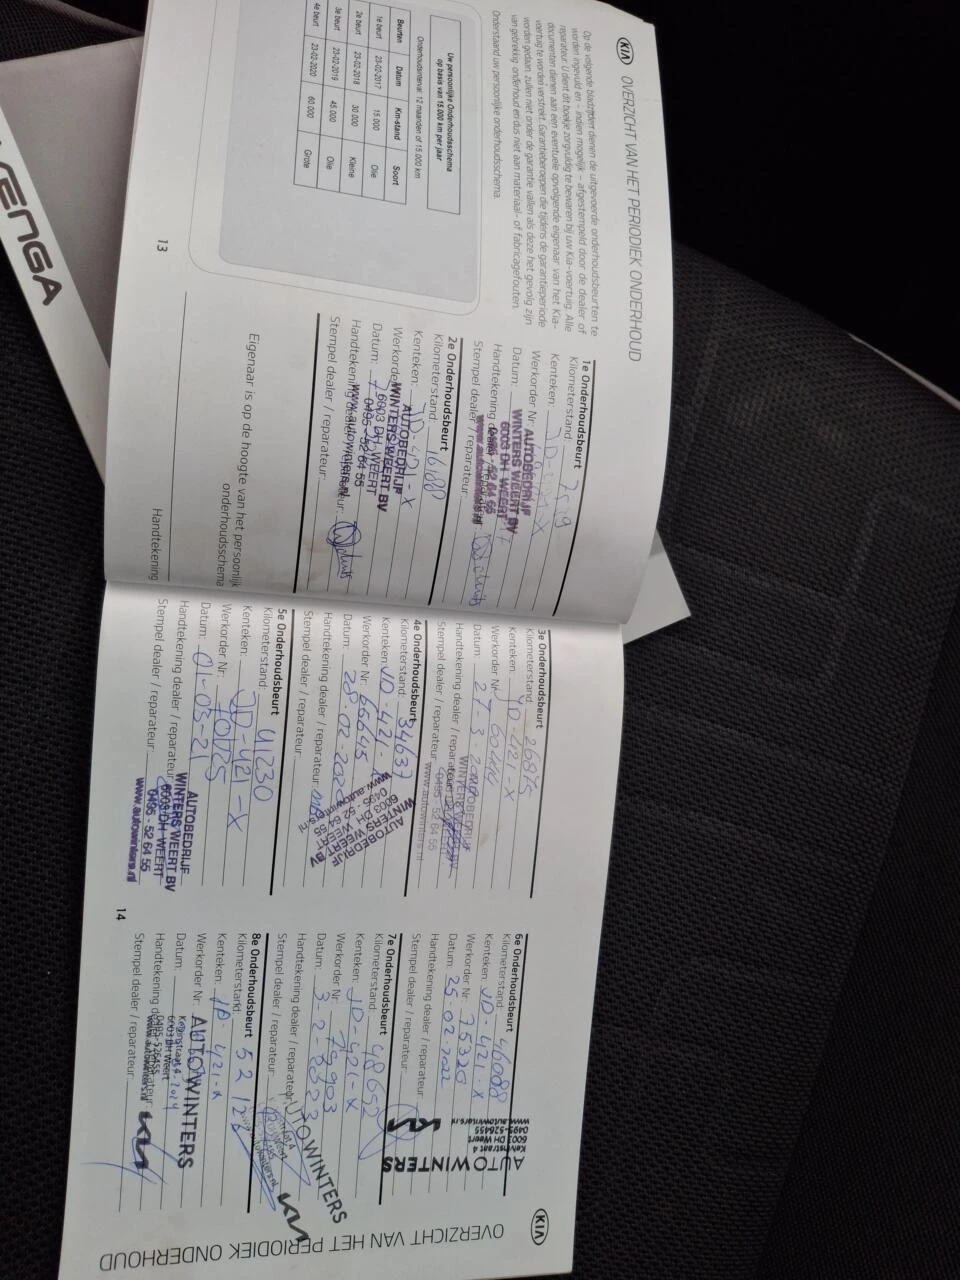 VENGA
KIA OVERZICHT VAN HET PERIODIEK ONDERHOUD
Op de volgende bladzijden dienen de uitgevoerde onderhoudsbeurten te
worden ingevuld en - indien mogelijk - afgestempeld door de dealer of
reparateur. U dient dit boekje zorgvuldig te bewaren bij uw Kia-voertuig. Alle
documenten dienen aan een eventuele opvolgende eigenaar van het Kia-
voertuig te worden verstrekt. Garantieberoepen die tijdens de garantieperiode
worden gedaan, zullen niet onder de garantie vallen als deze het gevolg zijn
van gebrekkig onderhoud en dus niet aan materiaal- of fabricagefouten.
Onderstaand uw persoonlijke onderhoudsschema.
Uw persoonlijke Onderhoudsschema
op basis van 15.000 km per jaar
Onderhoudsinterval: 12 maanden of 15.000 km
Beurten Datum Km-stand Soort
1e beurt 23-02-2017 15.000 Olie
2e beurt 23-02-2018 30.000 Kleine
3e beurt 23-02-2019 45.000 Olie
4e beurt 23-02-2020 60.000 Grote
13
1e Onderhoudsbeurt
Kilometerstand:
Kenteken:
Werkorder Nr:
Datum:
Handtekening dealer / reparateur:
Stempel dealer / reparateur:
AUTOBEDRIJF
WINTERS WEERT BV
6003 DH WEERT
0495 - 52 64 55
www.autowinters.nl
2e Onderhoudsbeurt
Kilometerstand: 16188
Kenteken: JD-421-X
Werkorder
Datum:
Handtekening dealer / reparateur:
Stempel dealer / reparateur:
AUTOBEDRIJF
WINTERS WEERT BV
6003 DH WEERT
0495 - 52 64 55
www.autowinters.nl
Eigenaar is op de hoogte van het persoonlijk
onderhoudsschema
Handtekening
3e Onderhoudsbeurt
Kilometerstand:
Kenteken: JD-421-X
Werkorder Nr:
Datum:
Handtekening dealer / reparateur:
Stempel dealer / reparateur:
AUTOBEDRIJF
WINTERS WEERT BV
0495 - 52 64 55
www.autowinters.nl
4e Onderhoudsbeurt
Kilometerstand: 34637
Kenteken: JD-421-X
Werkorder Nr: 65645
Datum: 28-02-2020
Handtekening dealer / reparateur:
Stempel dealer / reparateur:
AUTOBEDRIJF
WINTERS WEERT BV
6003 DH WEERT
0495 - 52 64 55
www.autowinters.nl
5e Onderhoudsbeurt
Kilometerstand: 41230
Kenteken: JD-421-X
Werkorder Nr: 70025
Datum: 01-03-21
Handtekening dealer / reparateur:
Stempel dealer / reparateur:
AUTOBEDRIJF
WINTERS WEERT BV
6003 DH WEERT
0495 - 52 64 55
www.autowinters.nl
14
6e Onderhoudsbeurt
Kilometerstand: 46088
Kenteken: JD-421-X
Werkorder Nr: 75320
Datum: 25-02-2022
Handtekening dealer / reparateur:
Stempel dealer / reparateur:
AUTOWINTERS
Kelvinstraat 4
6003 DH Weert
0495-526455
www.autowinters.nl
7e Onderhoudsbeurt
Kilometerstand: 48652
Kenteken: JD-421-X
Werkorder Nr: 79903
Datum: 3-2-2023
Handtekening dealer / reparateur:
Stempel dealer / reparateur:
AUTOWINTERS
8e Onderhoudsbeurt
Kilometerstand:
Kenteken: JD-421-X
Werkorder Nr:
Datum:
Handtekening dealer / reparateur:
Stempel dealer / reparateur:
AUTOWINTERS
Kelvinstraat 4
6003 DH Weert
0495-526455
www.autowinters.nl
KIA OVERZICHT VAN HET PERIODIEK ONDERHOUD